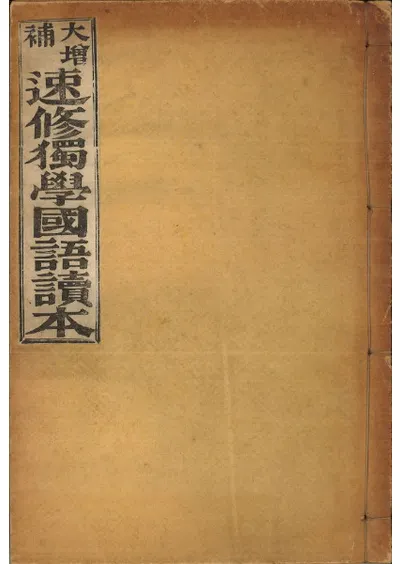 大增補
速修獨學國語讀本